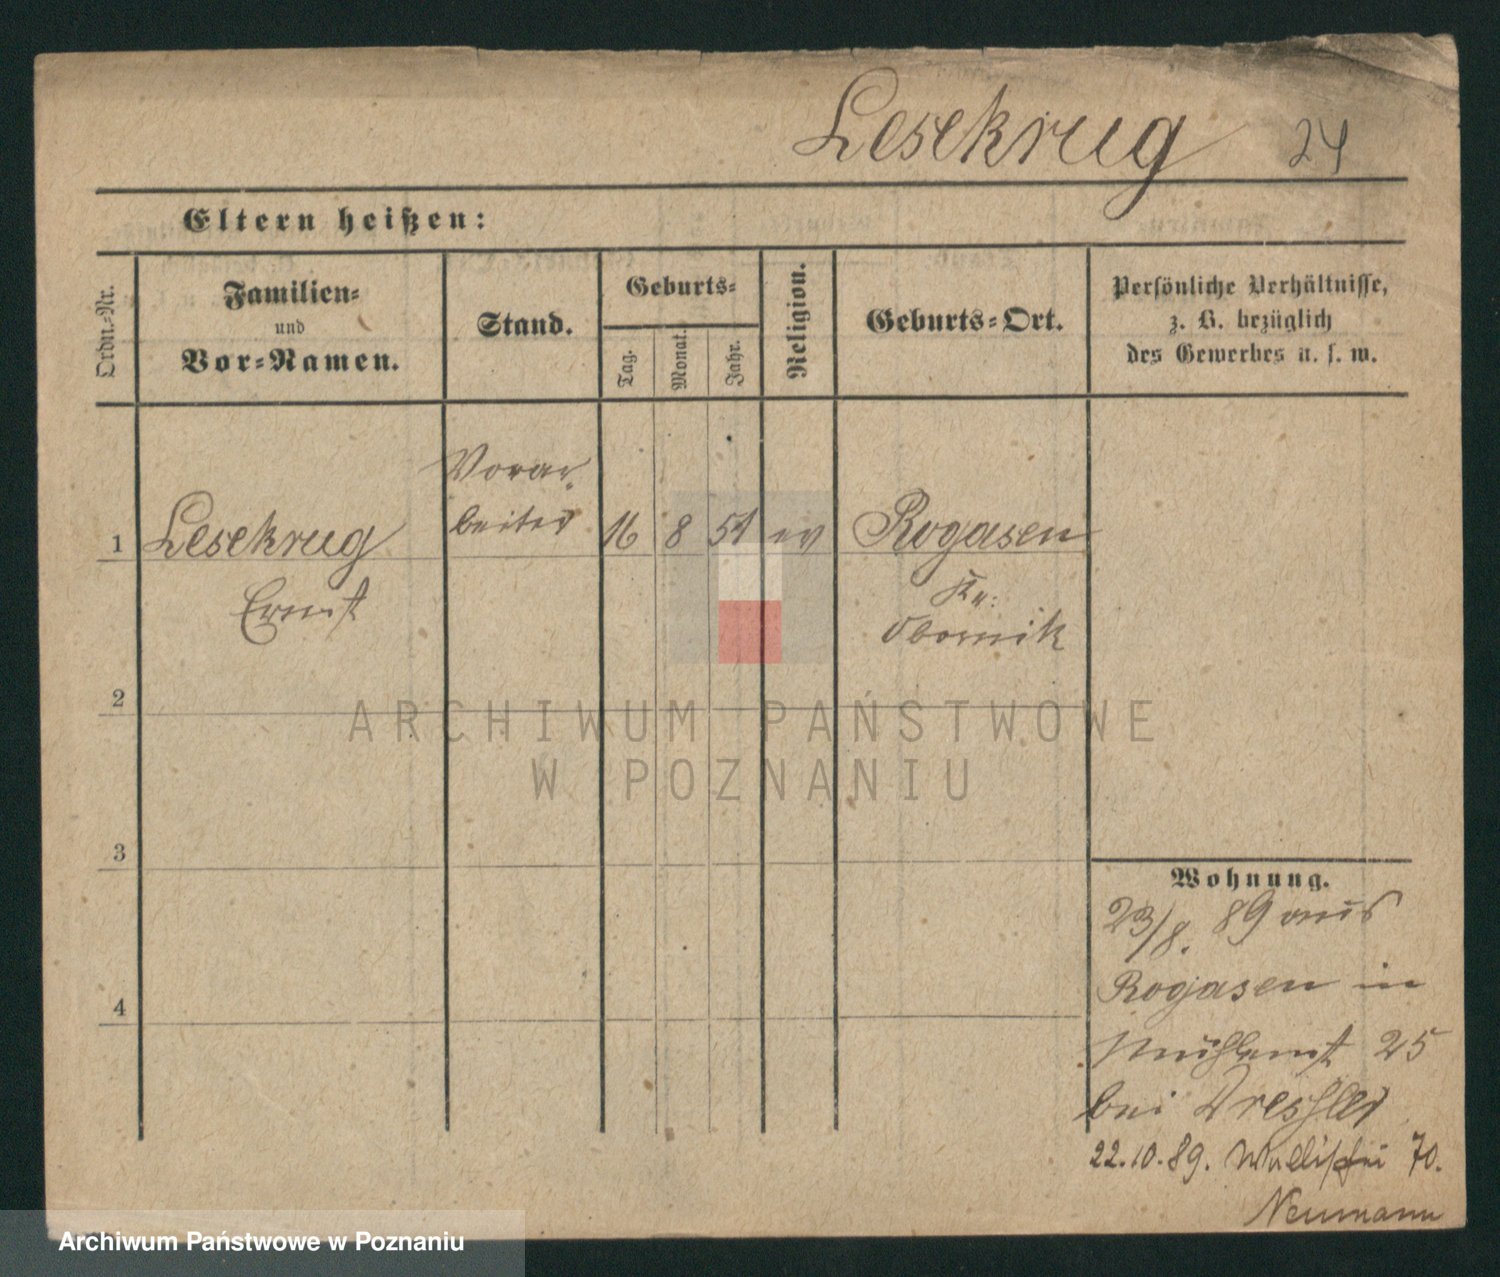 Lesekrug 24
Eltern heißen:
Ordn.-Nr.
Familien-
und
Vor-Namen.
Stand.
Geburts-
Tag.
Monat.
Jahr.
Religion.
Geburts-Ort.
Persönliche Verhältnisse,
z. B. bezüglich
des Gewerbes u. s. w.
1 Lesekrug
Ernst
Vorar-
beiter
16 8 51 ev
Rogasen
Kr:
Obornik
2
3
4
Wohnung.
23/8. 89 aus
Rogasen in
25
bei
22.10.89. Wallischei 70.
Neumann
ARCHIWUM PAŃSTWOWE
W POZNANIU
Archiwum Państwowe w Poznaniu